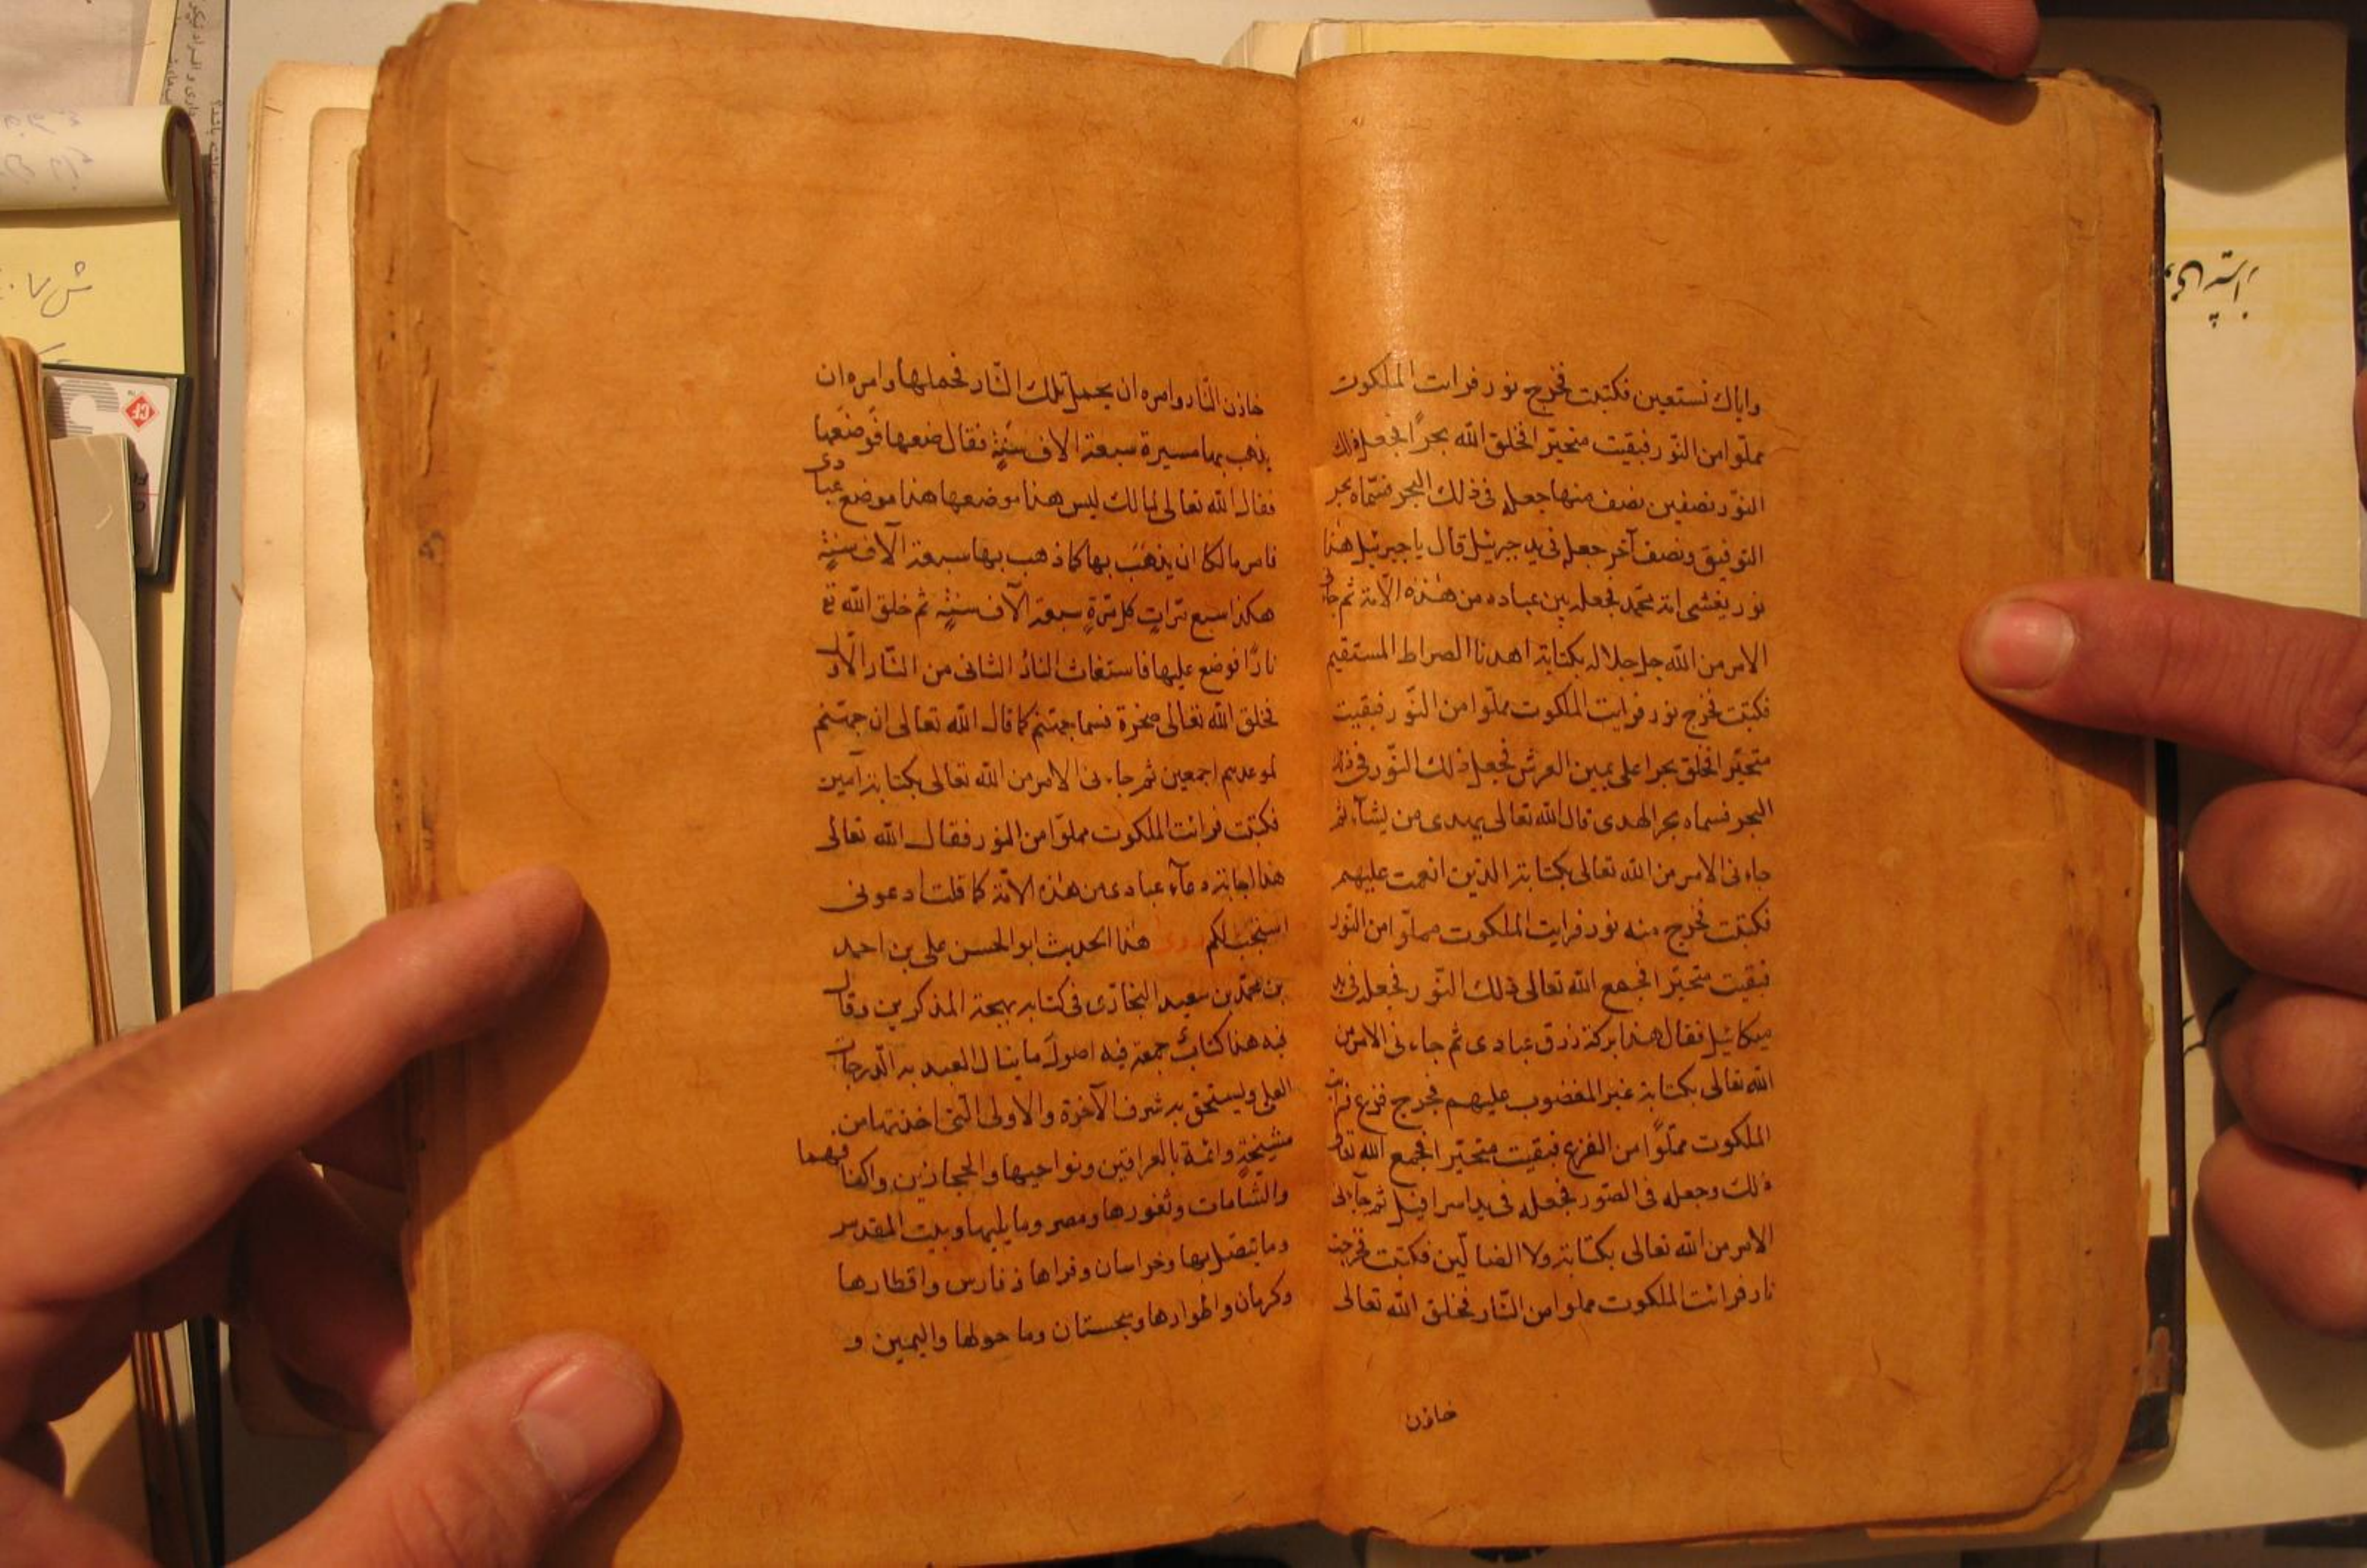 واياك نستعين فكتبت فخرج نور فرايت الملكوت
مملوا من النور فبقيت متحيرا فخلق الله بحرا فجعل ذلك
النور نصفين نصف منها جعله فى ذلك البحر فسماه بحر
التوفيق ونصف آخر جعله فى يد جبرئيل قال يا جبرئيل هذا
نور يغشى امة محمد فجعله بين عباده من هذه الامة ثم جاءنى
الامر من الله جل جلاله بكتابة اهدنا الصراط المستقيم
فكتبت فخرج نور فرايت الملكوت مملوا من النور فبقيت
متحيرا فخلق بحرا على يمين العرش فجعل ذلك النور فى ذلك
البحر فسماه بحر الهدى قال الله تعالى يهدى من يشآء ثم
جاءنى الامر من الله تعالى بكتابة الذين انعمت عليهم
فكتبت فخرج منه نور فرايت الملكوت مملوا من النور
فبقيت متحيرا فجمع الله تعالى ذلك النور فجعله فى يد
ميكائيل فقال هذا بركة رزق عبادى ثم جاءنى الامر من
الله تعالى بكتابة غير المغضوب عليهم فخرج فزع فرايت
الملكوت مملوا من الفزع فبقيت متحيرا فجمع الله تعالى
ذلك وجعله فى الصور فجعله فى يد اسرافيل ثم جاءنى
الامر من الله تعالى بكتابة ولا الضالين فكتبت فخرجت
نار فرائت الملكوت مملوا من النار فخلق الله تعالى
خازن
خازن النار وامره ان يحمل تلك النار فحملها وامره ان
يذهب بها مسيرة سبعة الاف سنة فقال ضعها فوضعها
فقال الله تعالى لمالك ليس هذا موضعها هذا موضع عبادى
فامر مالكا ان يذهب بها كما ذهب بها سبعة آلاف سنة
هكذا سبع مرات كل مرة سبعة آلاف سنة ثم خلق الله تع
نارا فوضع عليها فاستغاث النار الثانى من النار الاول
فخلق الله تعالى صخرة فسما جهنم كما قال الله تعالى ان جهنم
لموعدهم اجمعين ثم جاءنى الامر من الله تعالى بكتابة آمين
فكتبت فرائت الملكوت مملوا من النور فقال الله تعالى
هذا اجابة دعآء عبادى من هذه الامة كما قلت ادعونى
استجب لكم روى هذا الحديث ابو الحسن على بن احمد
بن محمد بن سعيد البخارى فى كتابه بهجة المذكرين وقال
فيه هذا كتاب جمعت فيه اصول ما ينال العبد به الدرجات
العلى ويستحق به شرف الآخرة والاولى التى اخذتها من
مشيخة وائمة بالعراقين ونواحيها والحجازين واكنافهما
والشامات وثغورها ومصر وما يليها وبيت المقدس
وما يتصل بها وخراسان وقراها وفارس واقطارها
وكرمان واطوارها وسجستان وما حولها واليمين و